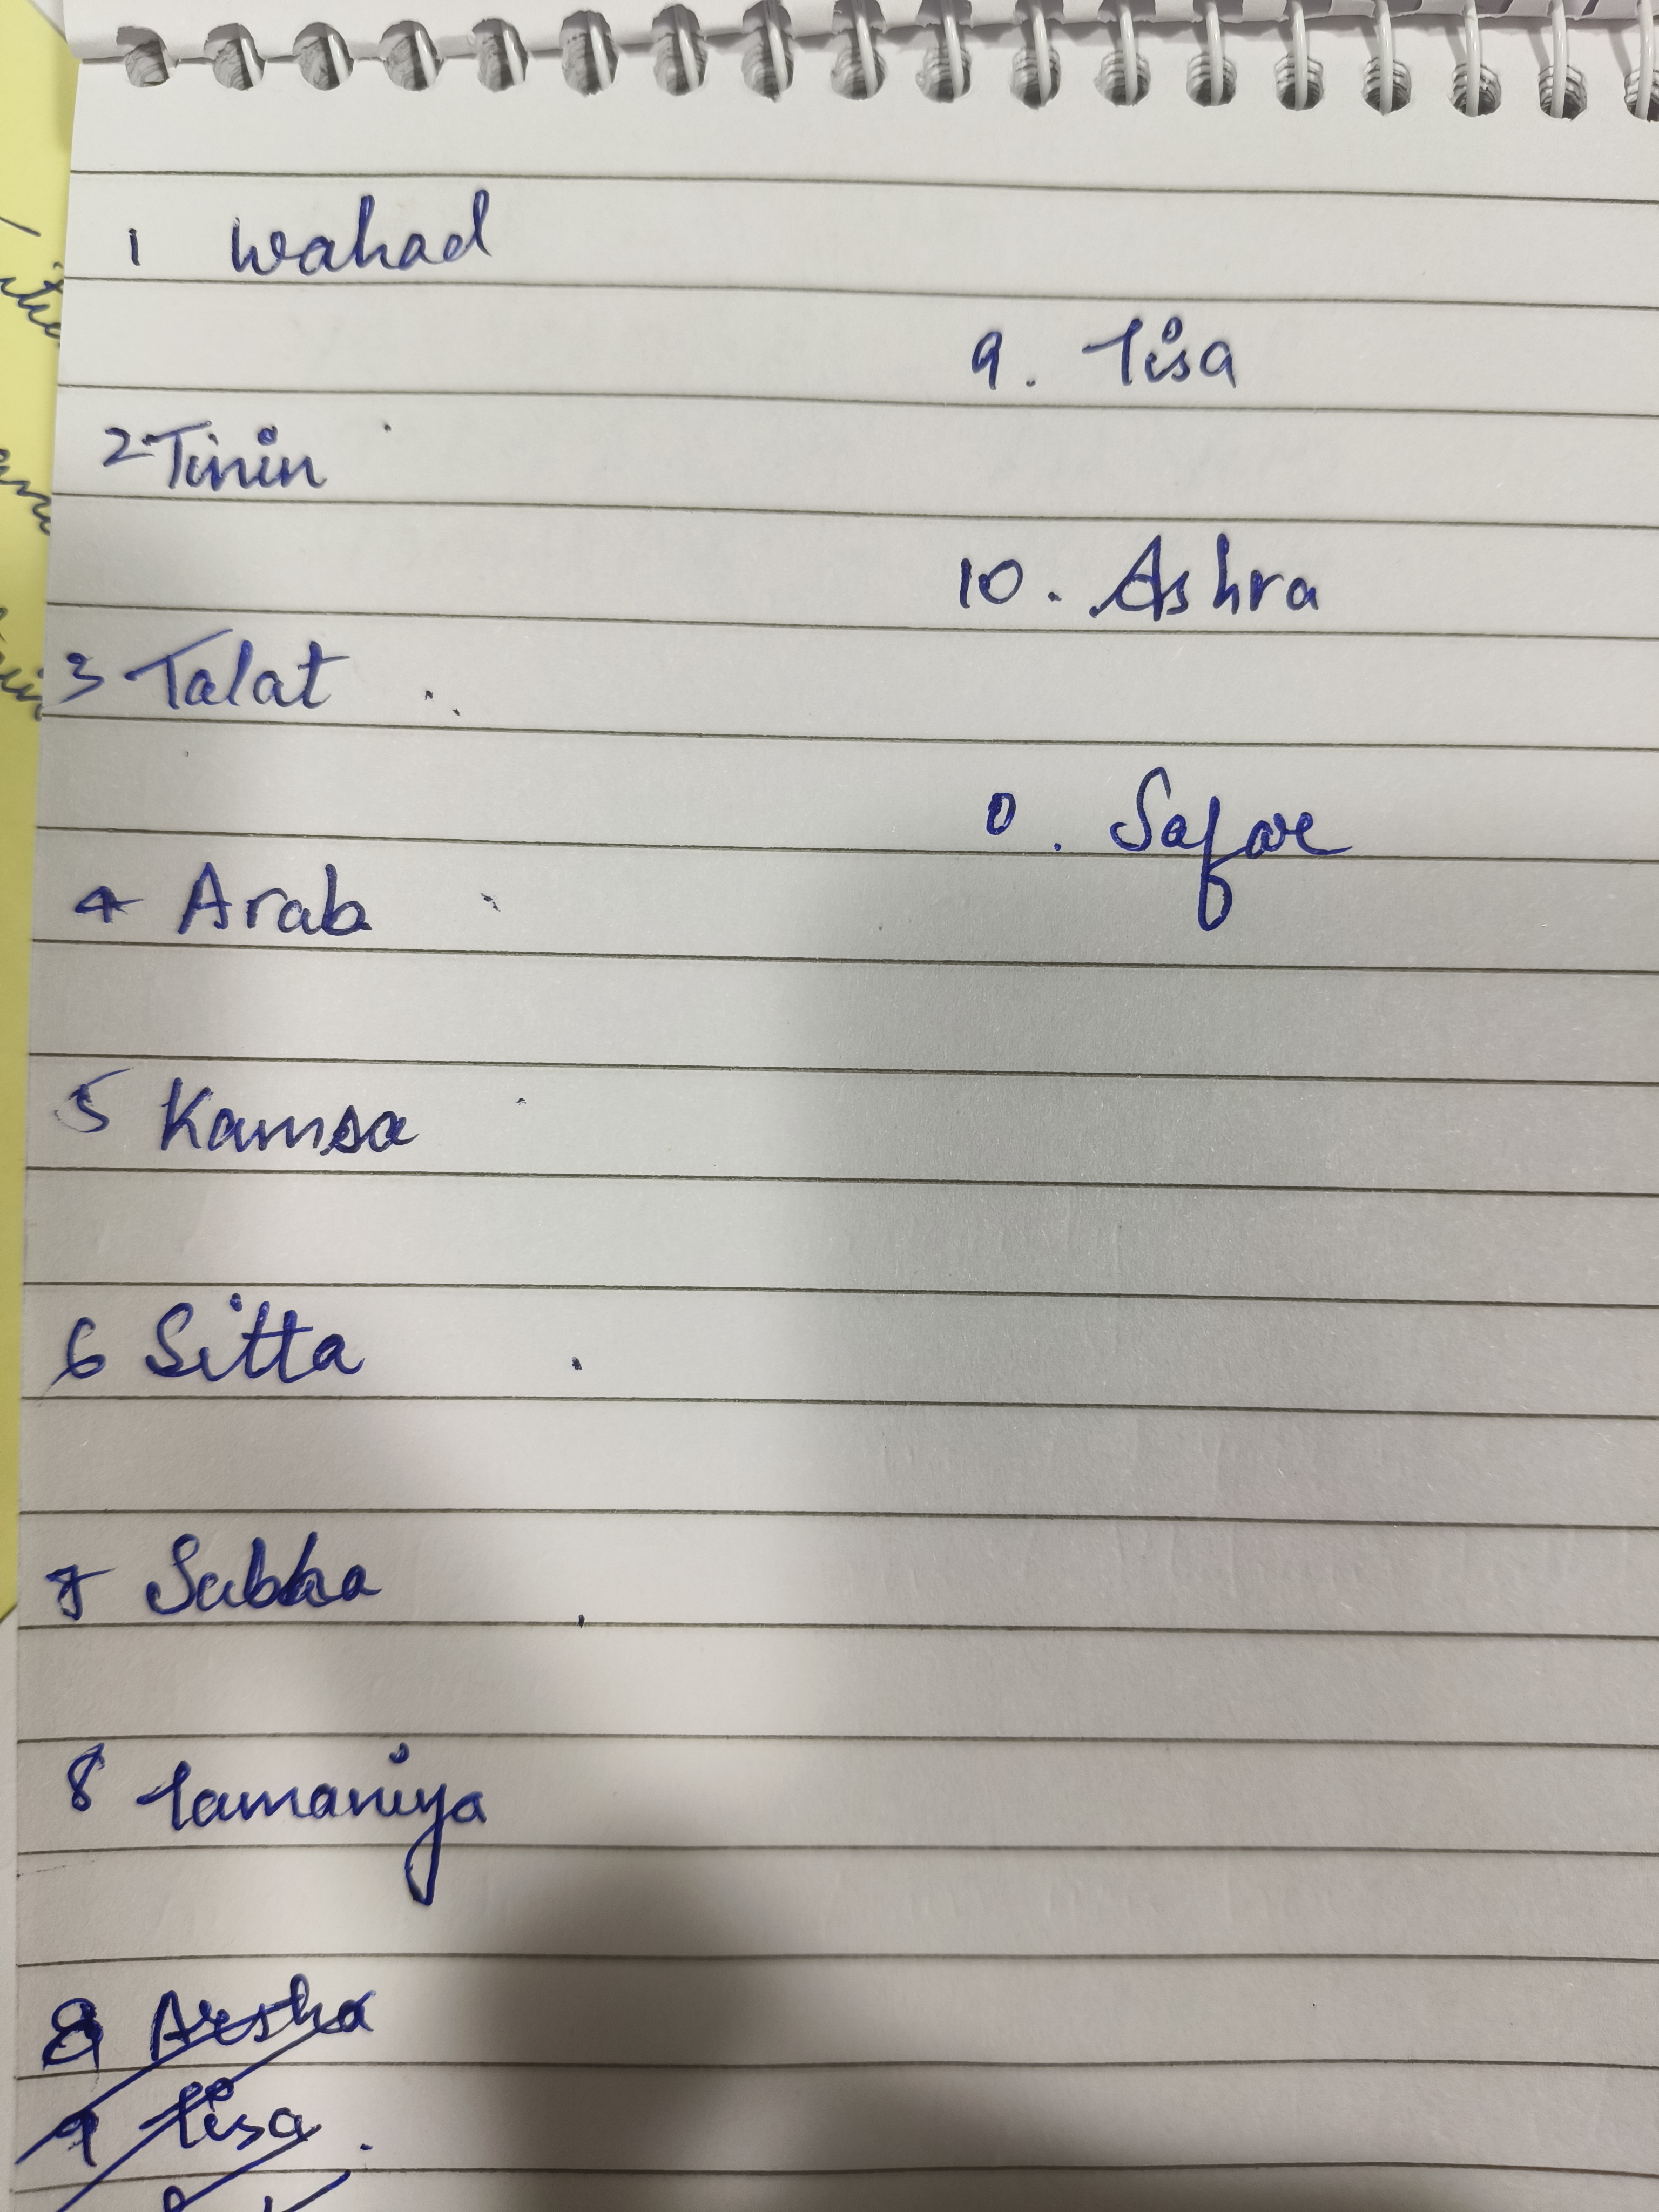 1 Wahad
2 Tinin
3 Talat
4 Arab
5 Kamsa
6 Sitta
7 Sabha
8 tamaniya
9 Arsha
9 tisa
9. Tisa
10. Ashra
0. Safar